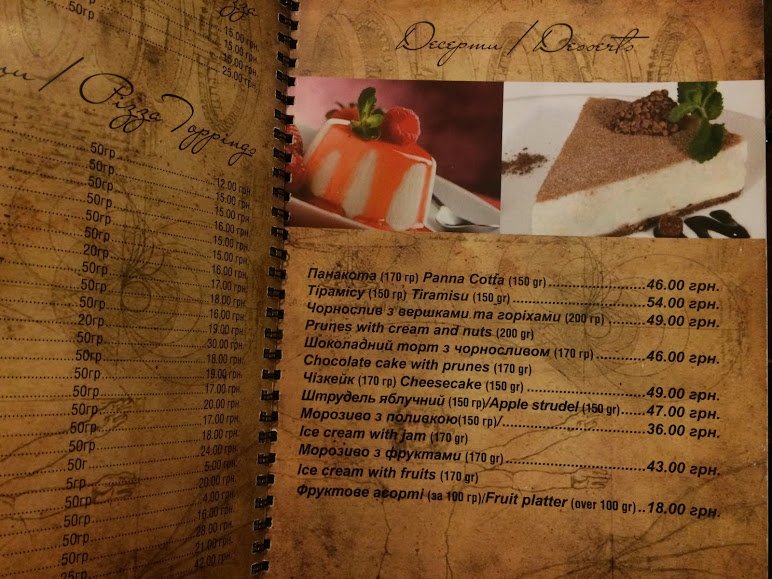 50гр
15.00 грн.
15.00 грн.
25.00 грн.
/ Pizza Toppings
50гр
50гр
50гр
50гр
50гр
20гр
50гр
50гр
50гр
20гр
50гр
50гр
50гр
50гр
50гр
50гр
50гр
50гр
50гр
5гр
50гр
50гр
50гр
50гр
12.00 грн.
15.00 грн.
15.00 грн.
16.00 грн.
15.00 грн.
16.00 грн.
17.00 грн.
18.00 грн.
16.00 грн.
19.00 грн.
30.00 грн.
18.00 грн.
19.00 грн.
17.00 грн.
20.00 грн.
17.00 грн.
18.00 грн.
24.00 грн.
5.00 грн.
20.00 грн.
4.00 грн.
16.00 грн.
28.00 грн.
21.00 грн.
42.00 грн.
Десерти / Desserts
Панакота (170 гр) Panna Cotta (150 gr) 46.00 грн.
Тірамісу (150 гр) Tiramisu (150 gr) 54.00 грн.
Чорнослив з вершками та горіхами (200 гр) 49.00 грн.
Prunes with cream and nuts (200 gr)
Шоколадний торт з чорносливом (170 гр) 46.00 грн.
Chocolate cake with prunes (170 gr)
Чізкейк (170 гр) Cheesecake (150 gr) 49.00 грн.
Штрудель яблучний (150 гр)/Apple strudel (150 gr) 47.00 грн.
Морозиво з поливкою(150 гр)/ 36.00 грн.
Ice cream with jam (170 gr)
Морозиво з фруктами (170 гр) 43.00 грн.
Ice cream with fruits (170 gr)
Фруктове асорті (за 100 гр)/Fruit platter (over 100 gr) ..18.00 грн.